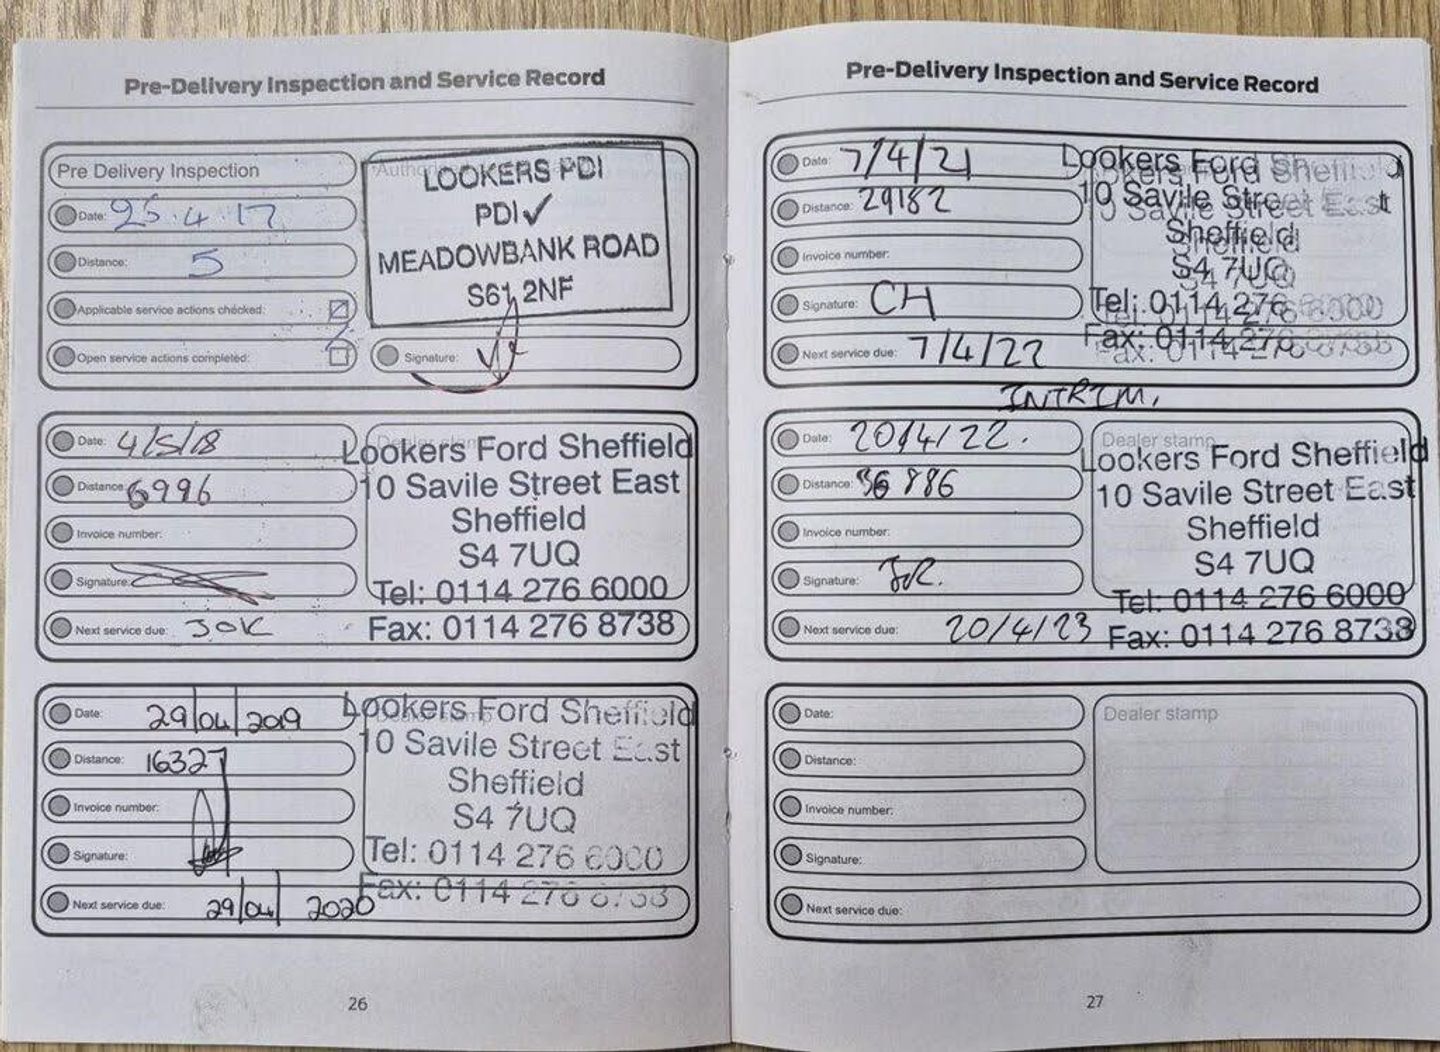 Pre-Delivery Inspection and Service Record
Pre Delivery Inspection
Date: 25.4.17
Distance: 5
Applicable service actions checked:
Open service actions completed:
LOOKERS PDI
PDI✓
MEADOWBANK ROAD
S61 2NF
Signature:
Date: 4/5/18
Distance: 6996
Invoice number:
Signature:
Next service due: JOK
Dealer stamp
Lookers Ford Sheffield
10 Savile Street East
Sheffield
S4 7UQ
Tel: 0114 276 6000
Fax: 0114 276 8738
Date: 29/04/2019
Distance: 16327
Invoice number:
Signature:
Next service due: 29/04/2020
Dealer stamp
Lookers Ford Sheffield
10 Savile Street East
Sheffield
S4 7UQ
Tel: 0114 276 6000
Fax: 0114 276 8738
26
Pre-Delivery Inspection and Service Record
Date: 7/4/21
Distance: 29182
Invoice number:
Signature: CH
Next service due: 7/4/22
Lookers Ford Sheffield
10 Savile Street East
Sheffield
S4 7UQ
Tel: 0114 276 6000
Fax: 0114 276 8738
INTRIM.
Date: 20/4/22.
Distance: 36886
Invoice number:
Signature: JR.
Next service due: 20/4/23
Dealer stamp
Lookers Ford Sheffield
10 Savile Street East
Sheffield
S4 7UQ
Tel: 0114 276 6000
Fax: 0114 276 8738
Date:
Distance:
Invoice number:
Signature:
Next service due:
Dealer stamp
27